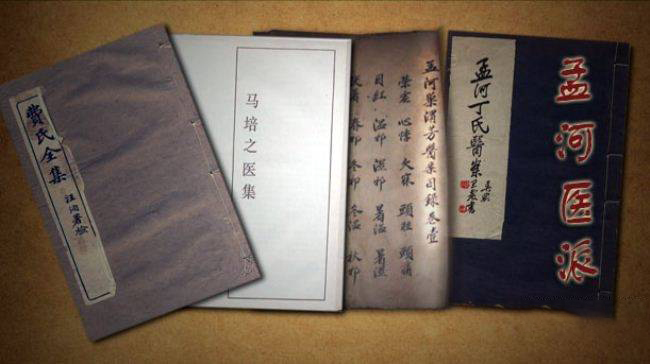 費氏全集
汪洵署檢
马培之医集
孟河巢渭芳醫案目錄卷壹
心悸 頭眩 頭痛
溫邪 濕邪 暑溫 暑濕
春邪 冬邪 冬溫 秋邪
孟河丁氏醫案
孟河医派